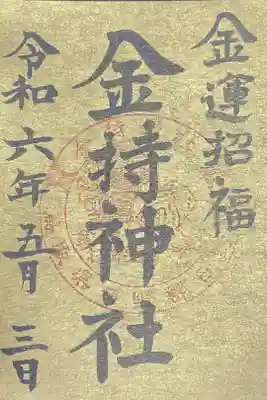 金運招福
金持神社
令和六年五月三日